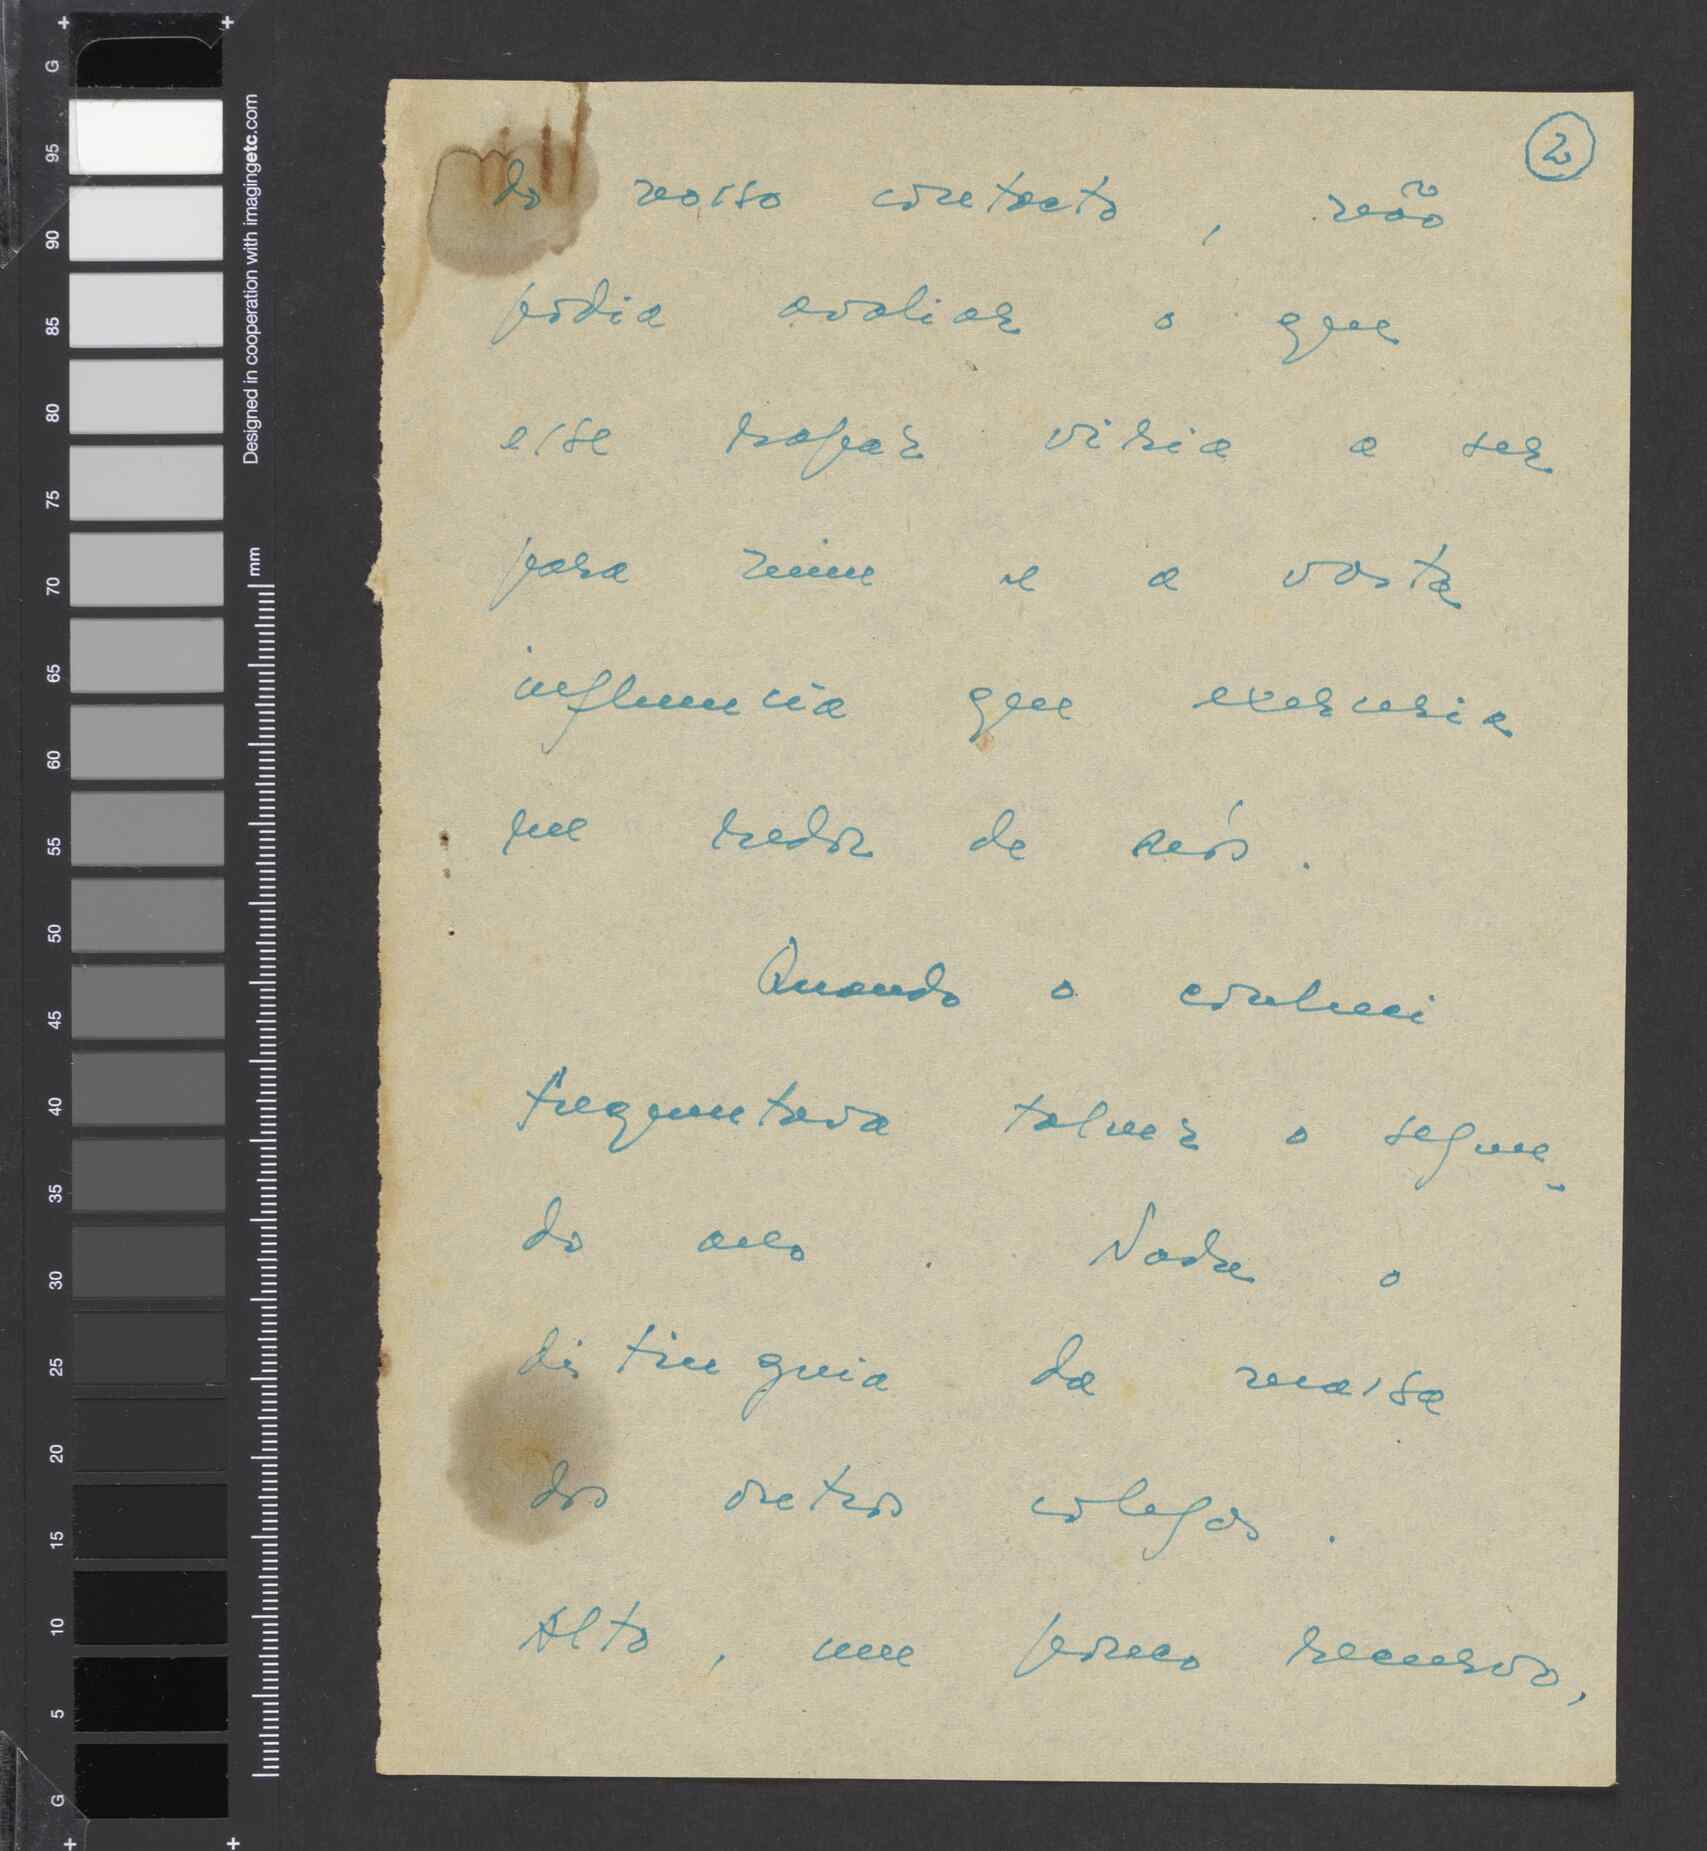 2
do nosso contacto, não
podia avaliar o que
esse rapaz viria a ser
para mim e a vasta
influencia que exerceria
em redor de nós.
Quando o conheci
frequentava talvez o segun-
do ano. Nada o
distinguia da massa
dos outros colegas.
Alto, um pouco recurvo,
Designed in cooperation with imagingetc.com
mm
G
95
90
85
80
75
70
65
60
55
50
45
40
35
30
25
20
15
10
5
G